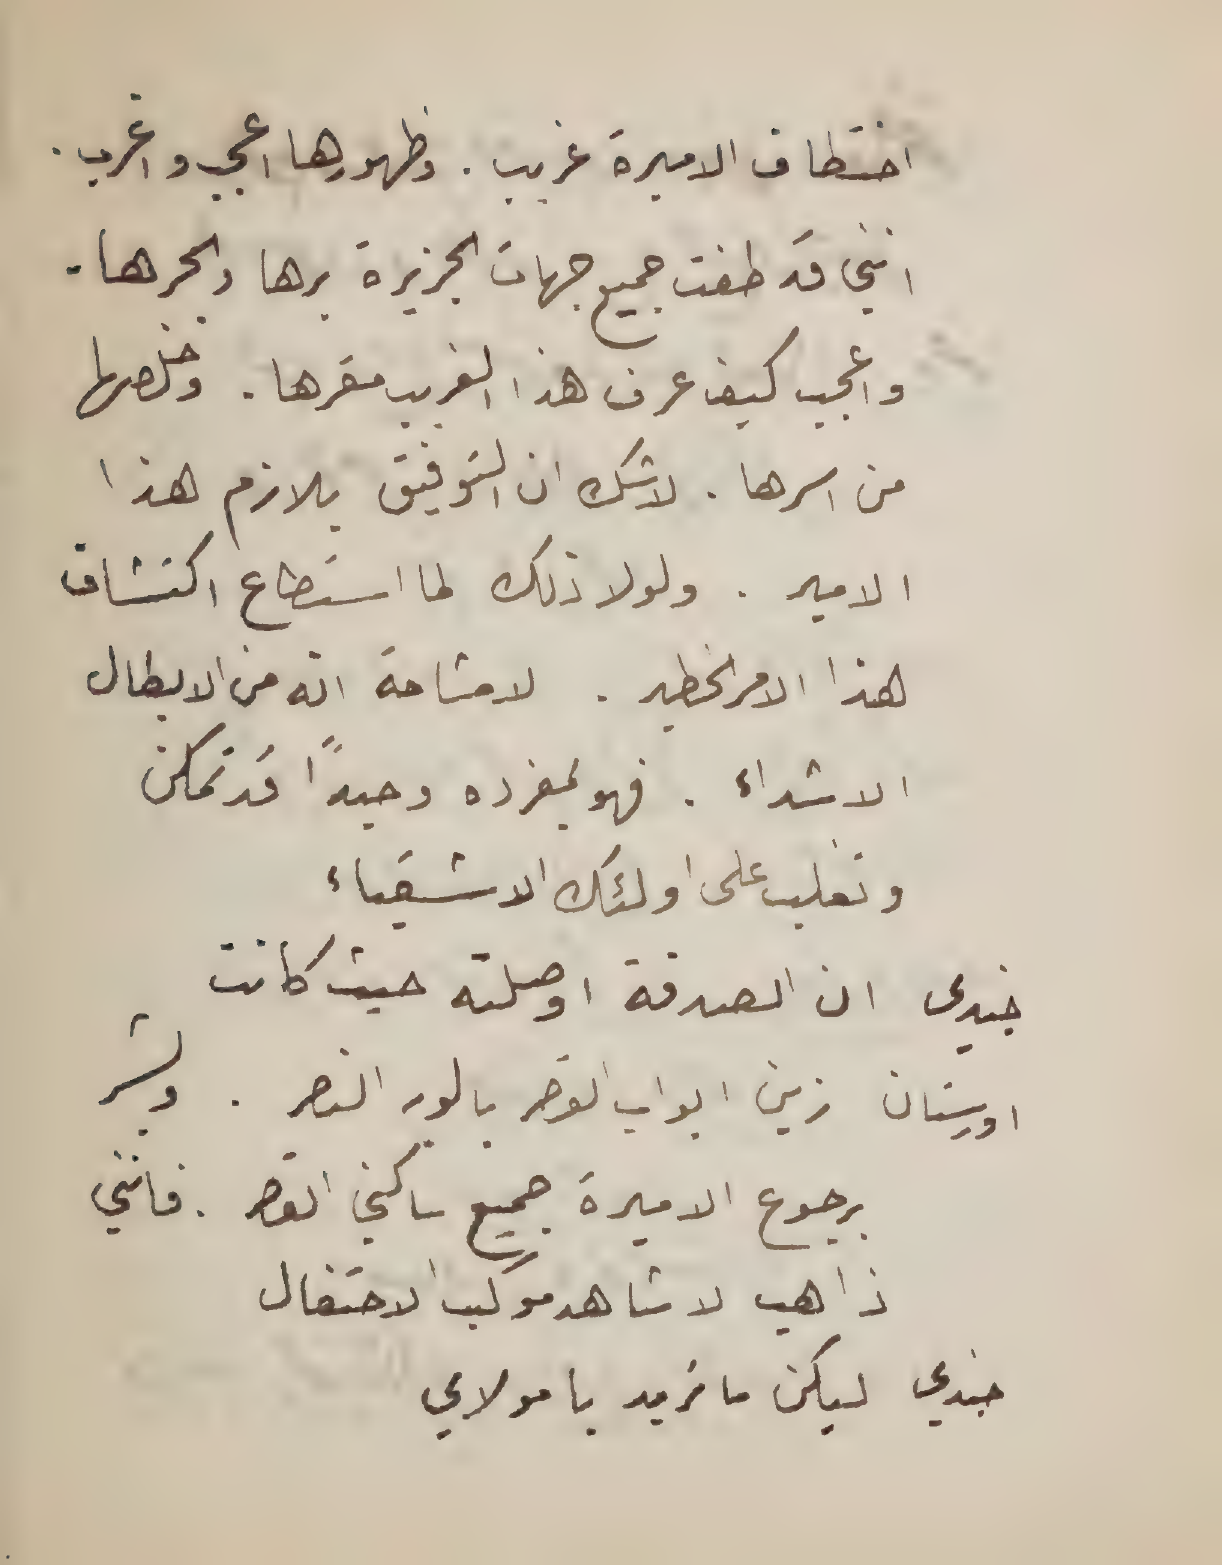 اختطاف الاميرة غريب . وظهورها اعجب واغرب .
انني قد طفت جميع جهات الجزيرة برها وبحرها .
واعجب كيف عرف هذا الغريب مقرها . وخلصها
من اسرها . لا شك ان التوفيق يلازم هذا
الامير . ولولا ذلك لما استطاع اكتشاف
هذا الامر الخطير . لا مشاحة انه من الابطال
الاشداء . فهو بمفرده وحيدًا قد تمكن
وتغلب على اولئك الاشقياء
جندي ان الصدفة اوصلته حيث كانت
اورستان زين ابواب القصر بالورد النضر . وبشر
برجوع الاميرة جميع ساكني القصر . فانني
ذاهب لاشاهد موكب الاحتفال
جندي ليكن ما تريد يا مولاي